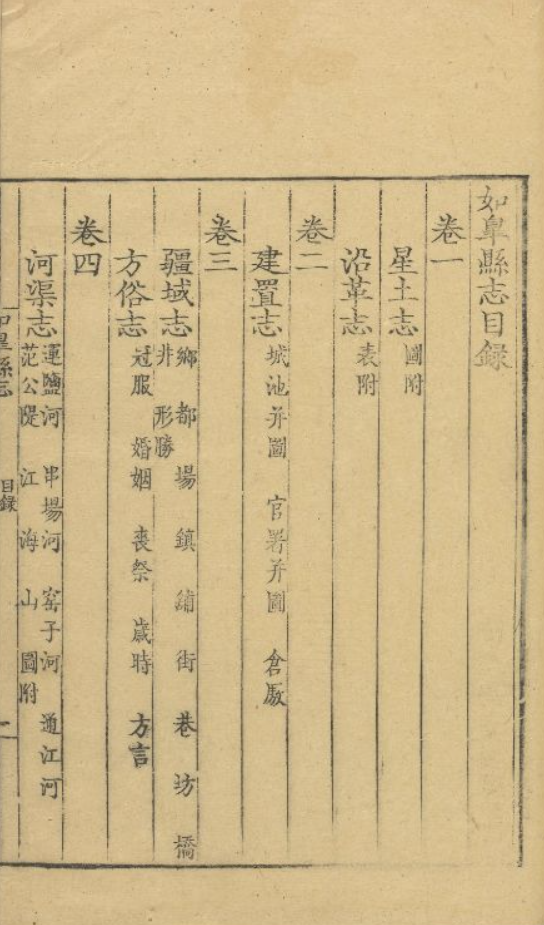 如臯縣志目録
卷一
星土志 圖附
沿革志 表附
卷二
建置志 城池并圖 官署并圖 倉厫
卷三
疆域志 鄉 都 場 鎮 舖 街 巷 坊 橋
井 形勝
方俗志 冠服 婚姻 喪祭 歲時 方言
卷四
河渠志 運鹽河 串場河 窑子河 通江河
范公隄 江 海 山 圖附
如臯縣志 目録 一